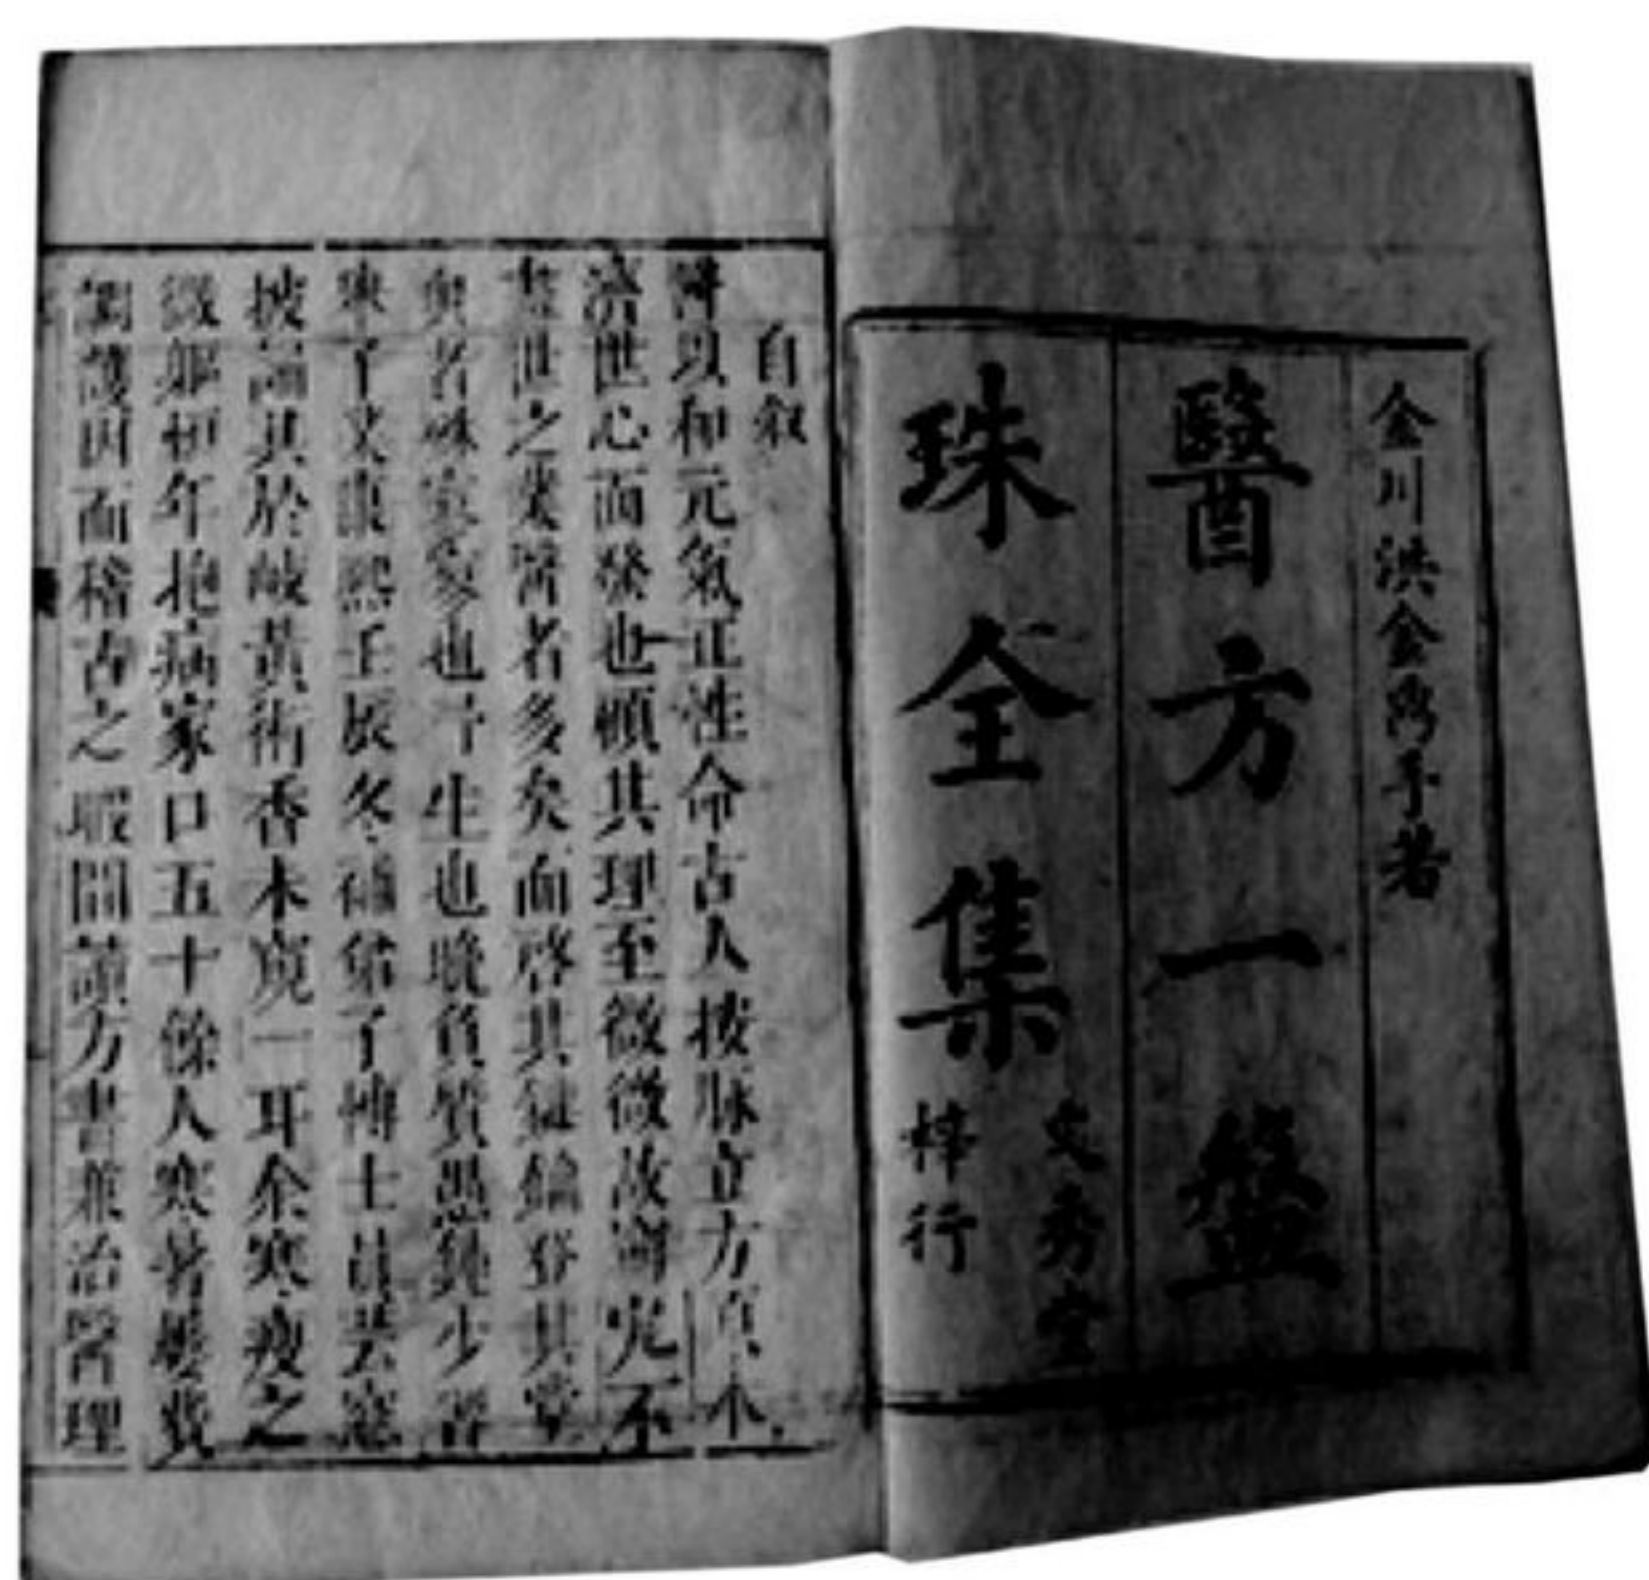 金川洪金鼎手著
醫方一盤
珠全集
文秀堂
梓行
自叙
醫以和元氣正性命古人按脉立方真不
濟世心而發也顧其理至微微故窮究不
世之業醫者多矣而啓其登其堂
者也生也質愚鈍少習
康熙壬辰冬補弟子博士員芸窓
披誦其於岐黃術香木窺一耳余寒瘦之
微軀恒年抱病家口五十餘人寒暑費
調護因而稽古之暇間讀方書兼治醫理